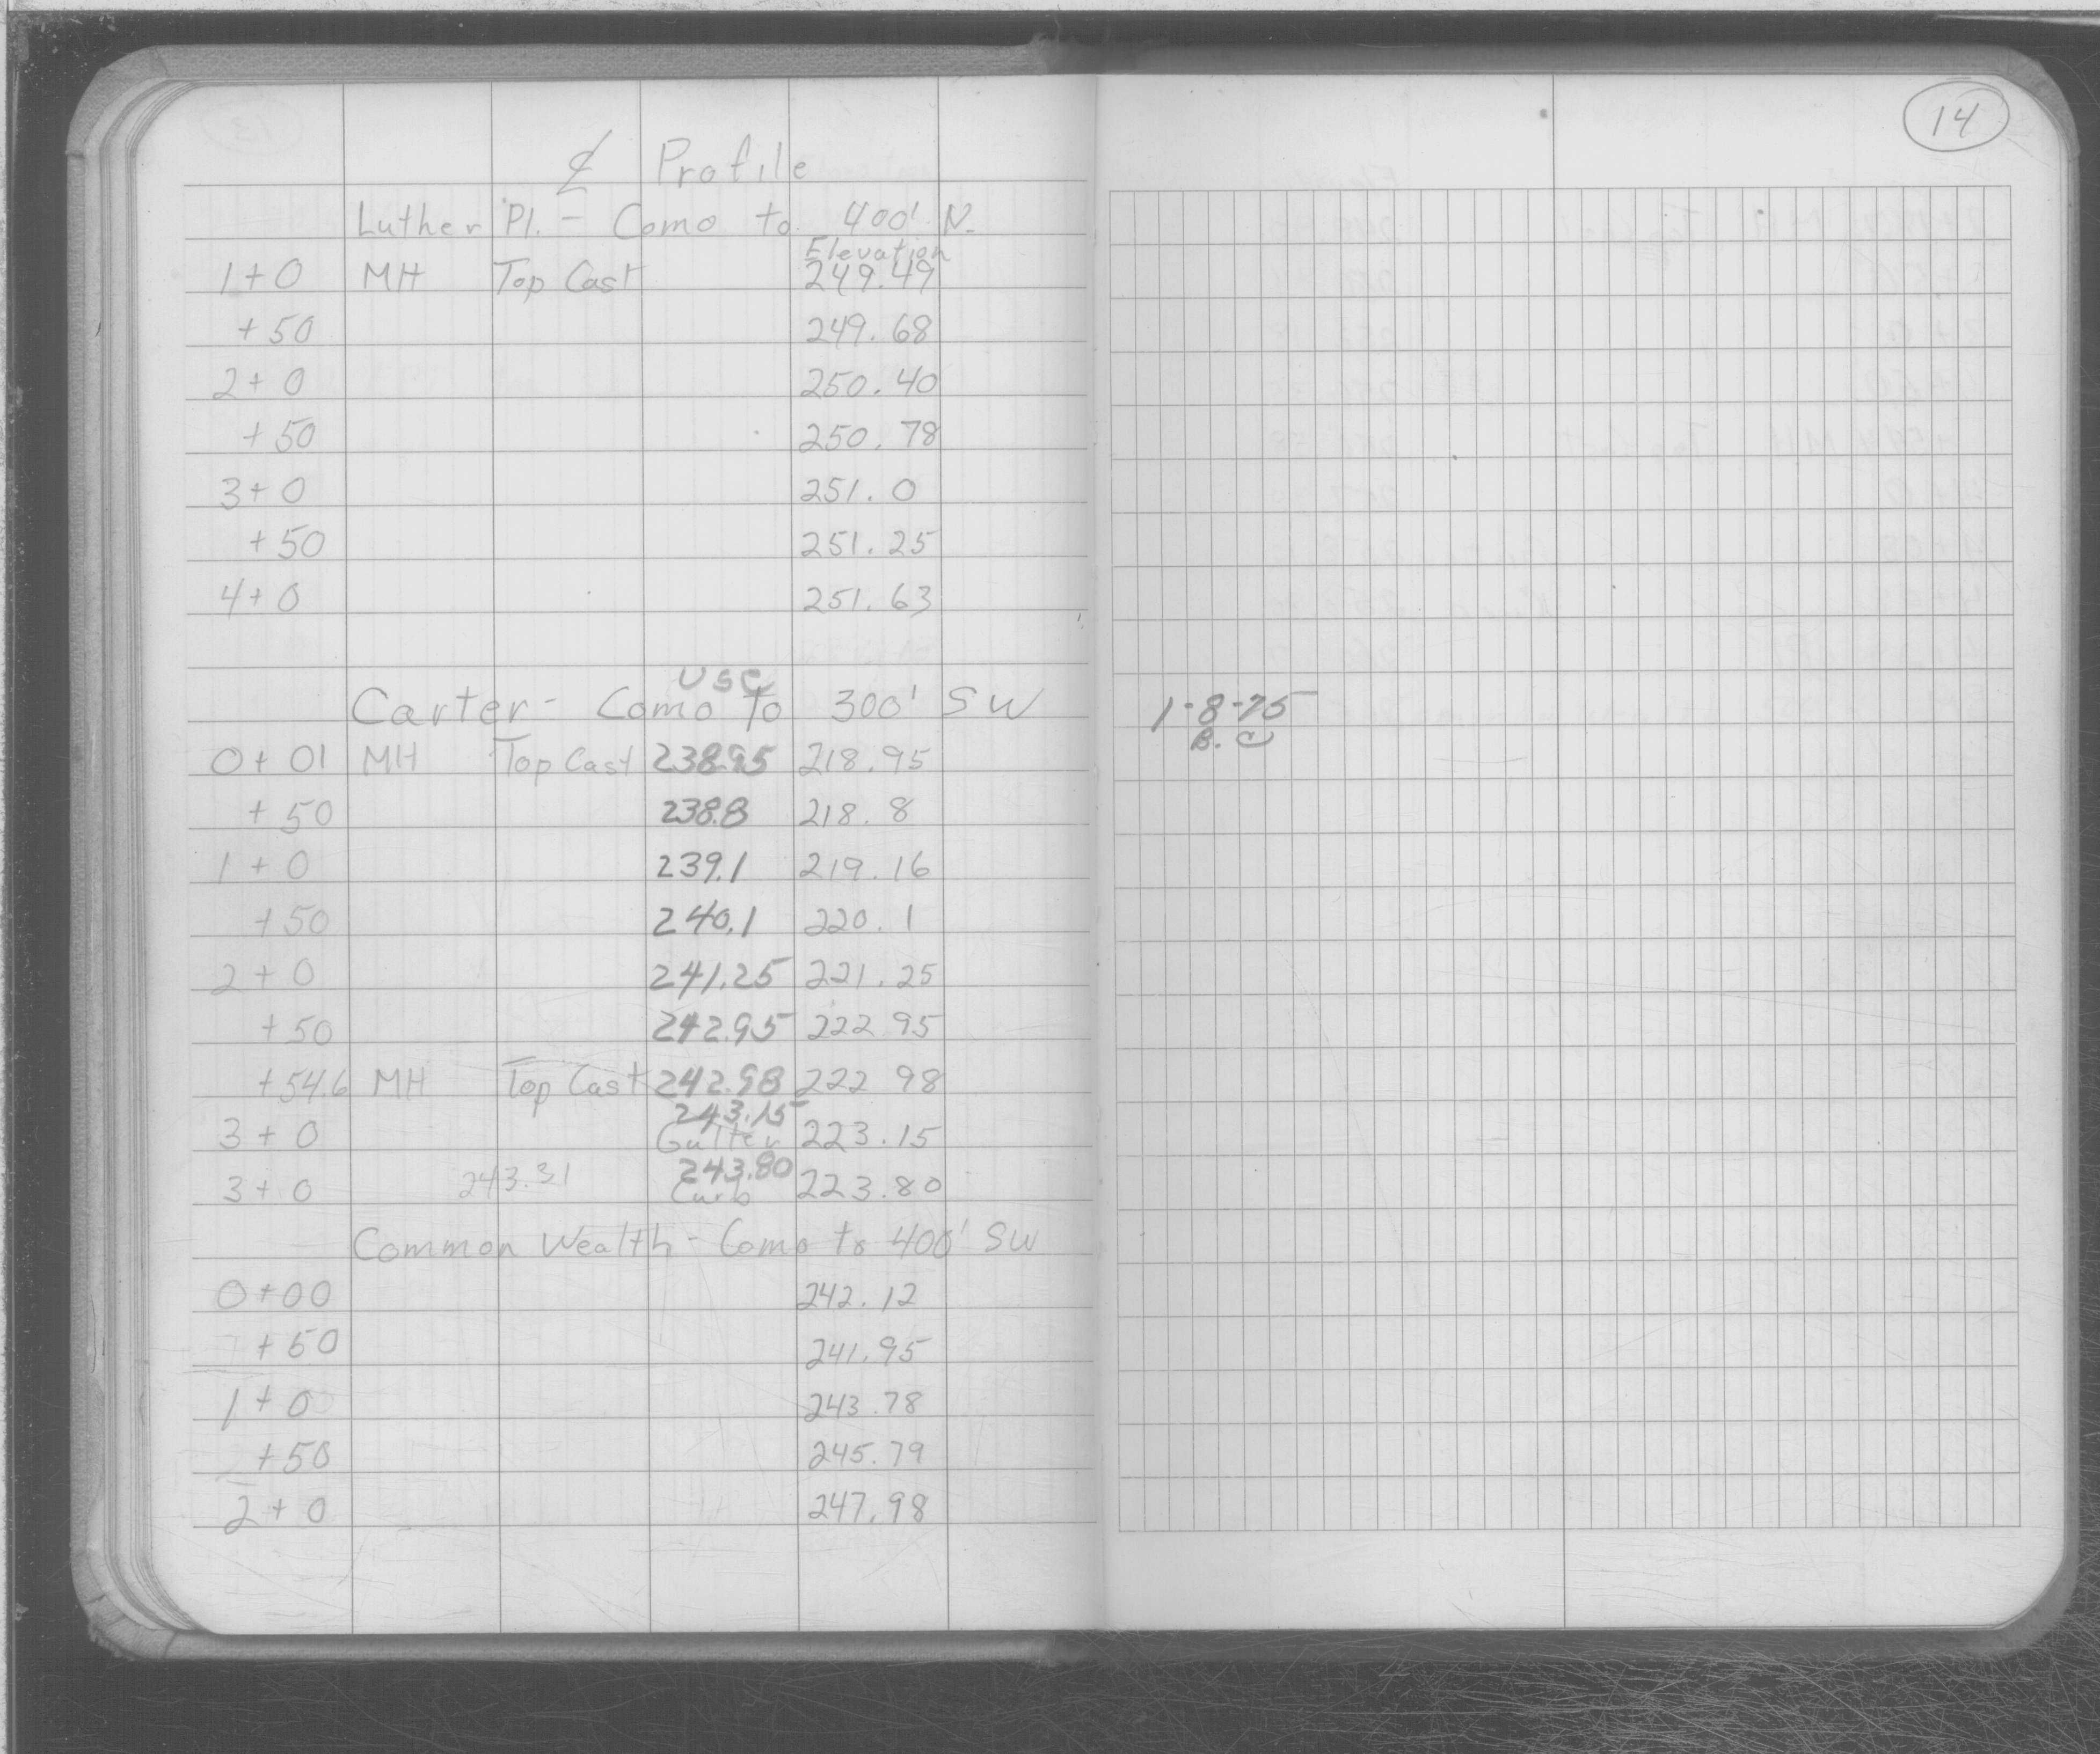 ℄ Profile
Luther Pl. - Como to 400' N.
Elevation
1+0 MH Top Cast 249.49
+50 249.68
2+0 250.40
+50 250.78
3+0 251.0
+50 251.25
4+0 251.63
USC
Carter - Como To 300' SW
0+01 MH Top Cast 238.95 218.95
+50 238.8 218.8
1+0 239.1 219.16
+50 240.1 220.1
2+0 241.25 221.25
+50 242.95 222.95
+54.6 MH Top Cast 242.98 222 98
243.15
3+0 Gutter 223.15
243.80
3+0 243.31 Curb 223.80
Common Wealth - Como to 400' SW
0+00 242.12
+50 241.95
1+0 243.78
+50 245.79
2+0 247.98
14
1-8-75
B. C